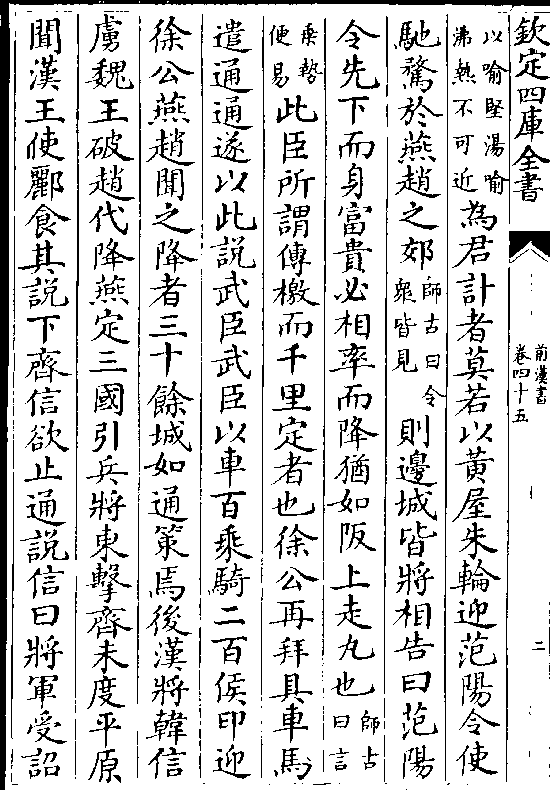 欽定四庫全書
前漢書
卷四十五
二
以喻堅湯喻
沸熱不可近
為君計者莫若以黄屋朱輪迎范陽令使
馳騖於燕趙之郊
師古曰令
衆皆見
則邊城皆將相告曰范陽
令先下而身富貴必相率而降猶如阪上走丸也
師古
曰言
乘勢
便易
此臣所謂傳檄而千里定者也徐公再拜具車馬
遣通通遂以此説武臣武臣以車百乘騎二百侯印迎
徐公燕趙聞之降者三十餘城如通策焉後漢將韓信
虜魏王破趙代降燕定三國引兵將東擊齊未度平原
聞漢王使酈食其説下齊信欲止通説信曰將軍受詔